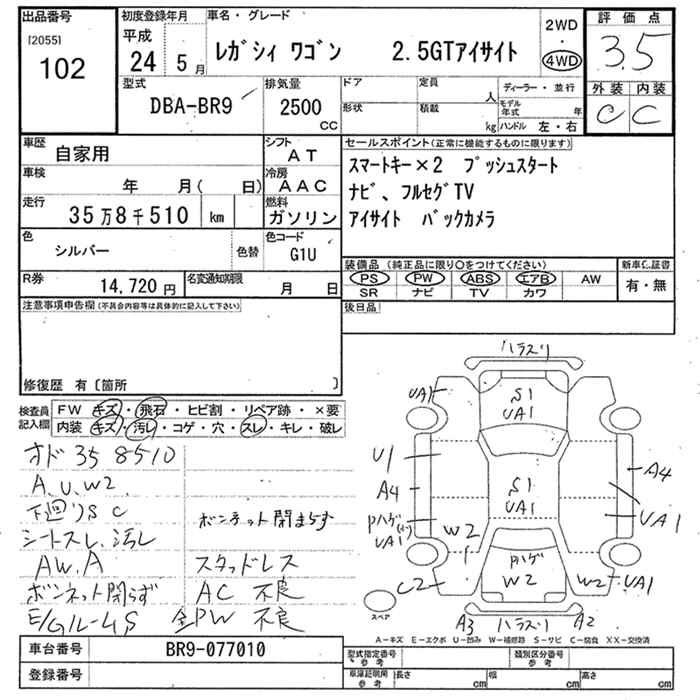 出品番号
[2055]
102
初度登録年月
平成
24 年 5 月
車名・グレード
ﾚｶﾞｼｨ ﾜｺﾞﾝ 2.5GTｱｲｻｲﾄ
2WD
4WD
評価点
3.5
外装 内装
C C
型式
DBA-BR9
排気量
2500
CC
ドア
形状
定員
人
積載
kg
ディーラー・並行
モデル年式 年
ハンドル 左・右
車歴
自家用
シフト
AT
車検
年 月( 日)
冷房
AAC
走行
35万8千510 km
燃料
ガソリン
色
シルバー
色替
色コード
G1U
R券
14,720 円
名変通知期限
月 日
セールスポイント(正常に機能するものに限ります)
ｽﾏｰﾄｷｰ×2 ﾌﾟｯｼｭｽﾀｰﾄ
ﾅﾋﾞ、ﾌﾙｾｸﾞTV
ｱｲｻｲﾄ ﾊﾞｯｸｶﾒﾗ
装備品(純正品に限り○をつけてください)
PS PW ABS エアB AW
SR ナビ TV カワ
新車保証書
有・無
後日品
注意事項申告欄(不具合内容等は具体的に記入して下さい)
修復歴 有〔箇所 〕
検査員記入欄
FW キズ・飛石・ヒビ割・リペア跡・×要
内装 キズ・汚レ・コゲ・穴・スレ・キレ・破レ
オド 358510
A.U.W2
下廻りS C
ボンネット閉まらず
シートスレ、汚レ
AW.A
スタッドレス
ボンネット閉らず
AC 不良
E/Gルーム S
全PW 不良
ハラスリ
UA1
S1
UA1
U1
A4
A4
S1
UA1
Pハゲ
UA1
UA1
W2
Pハゲ
W2
C2
W2
UA1
スペア
A3
ハラスリ
A2
A―キズ E―エクボ U―凹み W―補修跡 S―サビ C―腐食 XX―交換済
車台番号
BR9-077010
登録番号
型式指定番号
参考
類別区分番号
参考
車庫証明用
参考
長さ cm
幅 cm
高さ cm